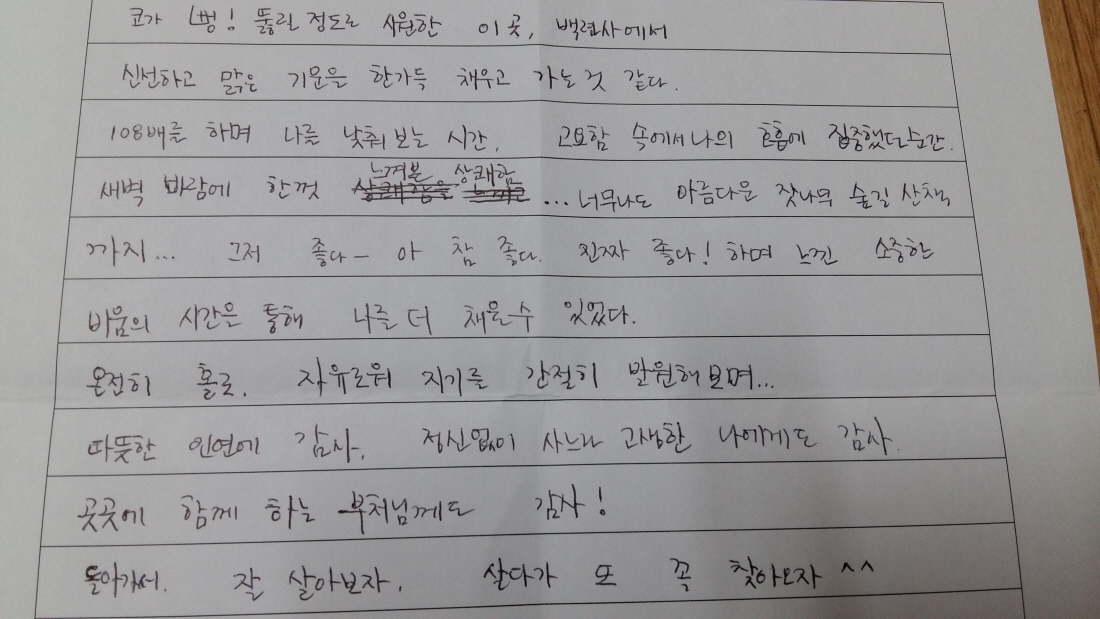 코가 뻥! 뚫릴 정도로 시원한 이 곳, 백련사에서
신선하고 맑은 기운을 한가득 채우고 가는 것 같다.
108배를 하며 나를 낮춰 보는 시간. 고요함 속에서 나의 호흡에 집중했던 순간.
새벽 바람에 한껏 느껴본 상쾌함 ... 너무나도 아름다운 잣나무 숲길 산책
까지... 그저 좋다- 아 참 좋다. 진짜 좋다! 하며 느낀 소중한
비움의 시간을 통해 나를 더 채울수 있었다.
온전히 홀로. 자유로워 지기를 간절히 발원해 보며...
따뜻한 인연에 감사. 정신없이 사느라 고생한 나에게도 감사.
곳곳에 함께 하는 부처님께도 감사!
돌아가서. 잘 살아보자. 살다가 또 꼭 찾아오자 ^^